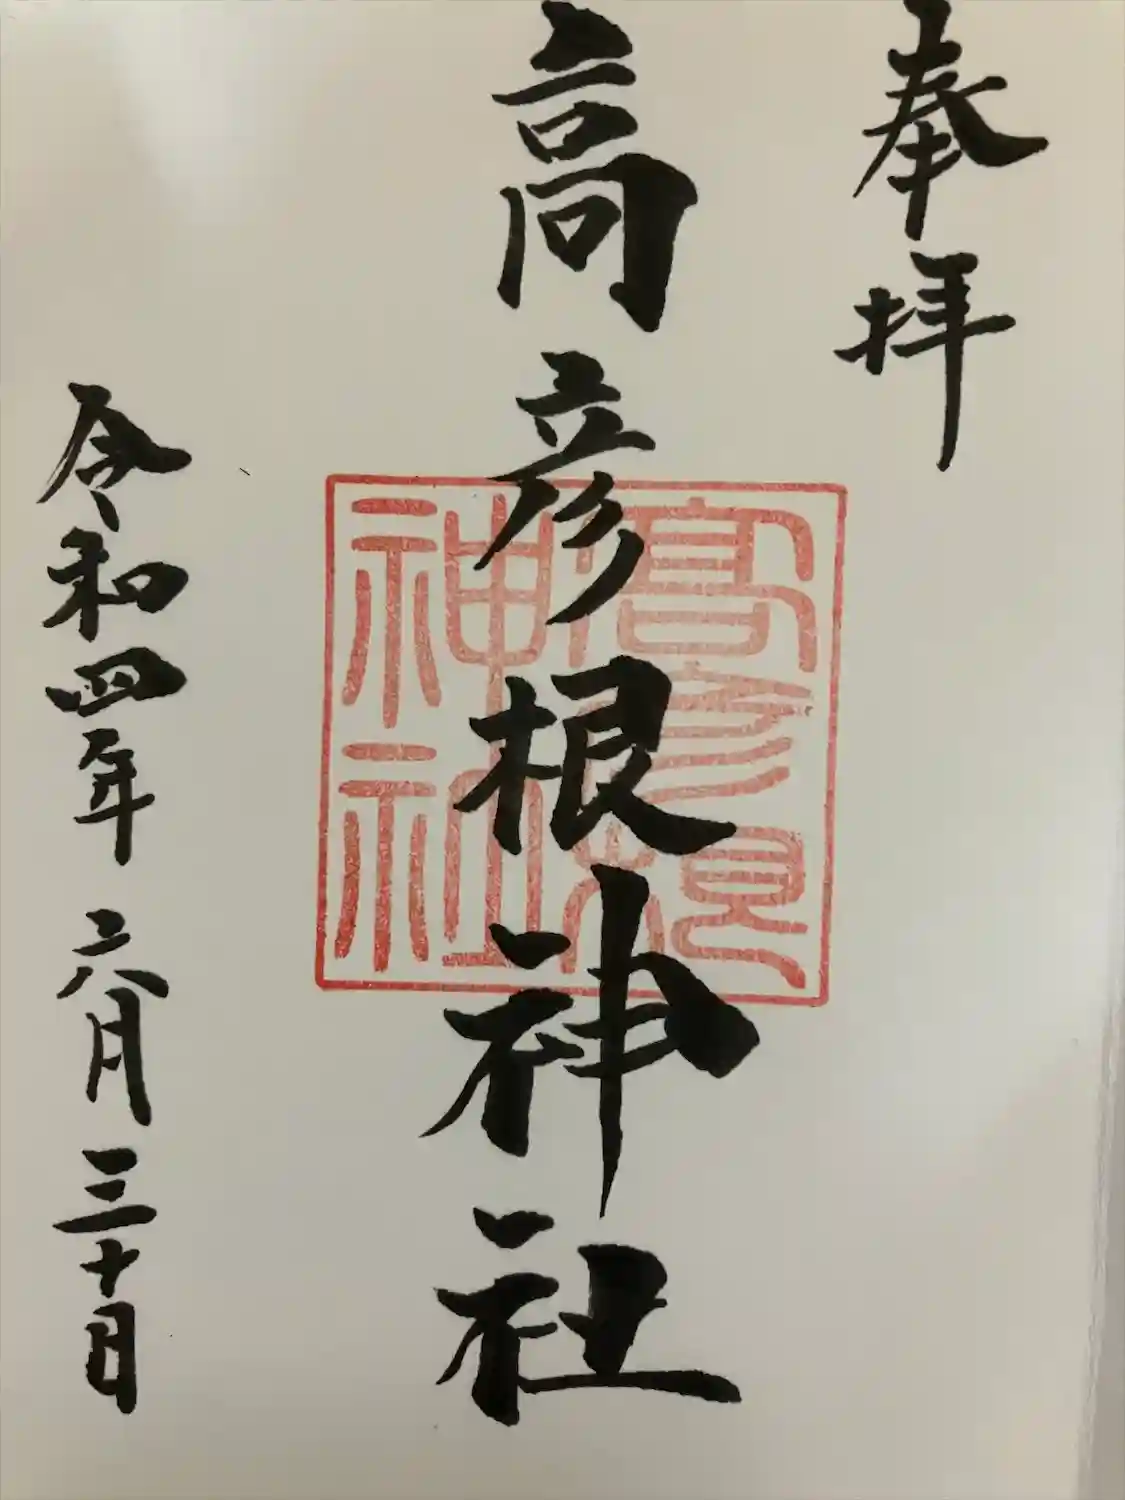 奉拝
高彦根神社
高彦根神社
令和四年六月三十日